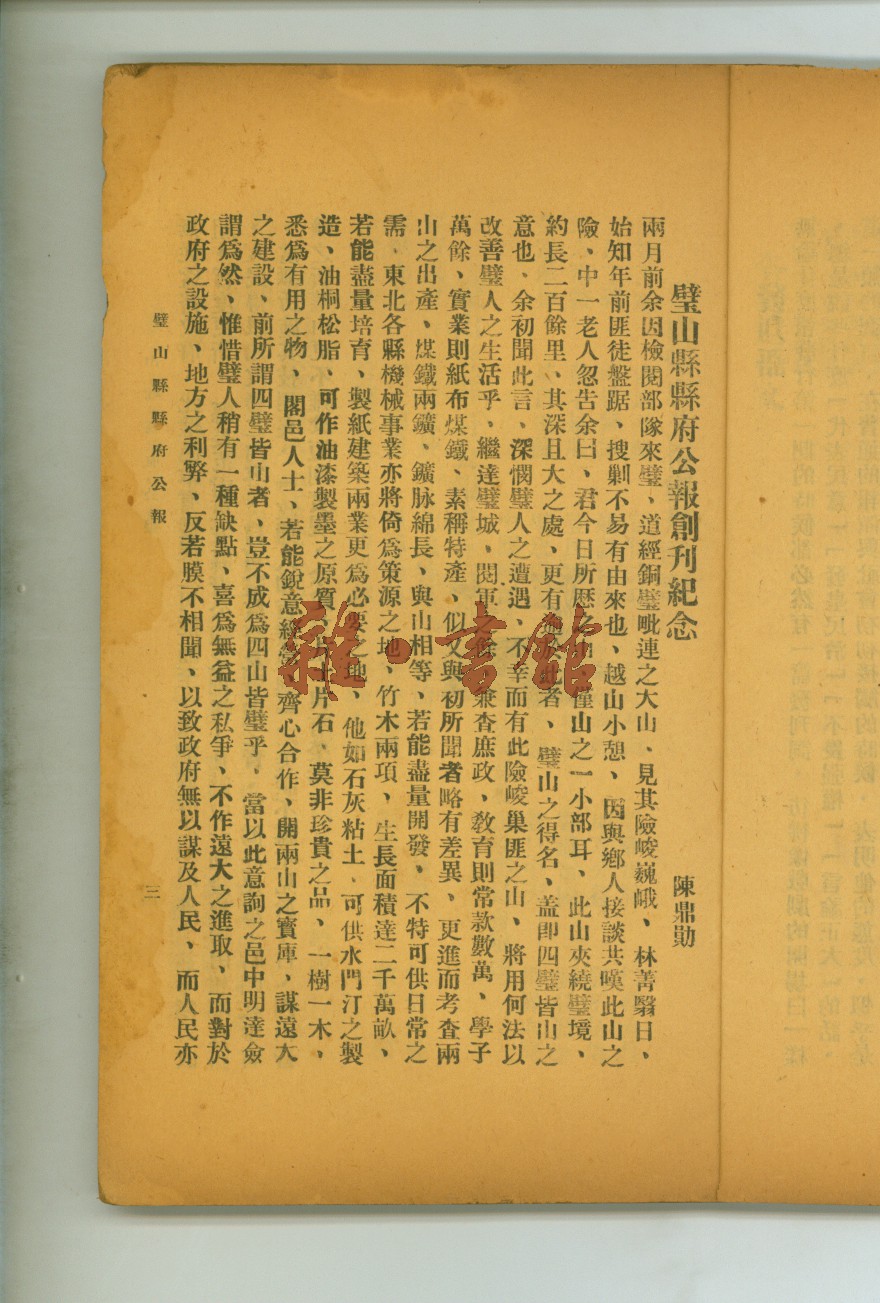 璧山縣縣府公報創刊紀念
陳鼎勛
兩月前余因檢閱部隊來璧、道經銅璧毗連之大山、見其險峻巍峨、林菁翳日、
始知年前匪徒盤踞、搜剿不易有由來也、越山小憩、因與鄉人接談共嘆此山之
險、中一老人忽告余曰、君今日所歷之山僅山之一小部耳、此山夾繞璧境、
約長二百餘里、其深且大之處、更有於此者、璧山之得名、蓋即四璧皆山之
意也、余初聞此言、深憫璧人之遭遇、不幸而有此險峻巢匪之山、將用何法以
改善璧人之生活乎、繼達璧城、閱軍之餘兼查庶政、敎育則常款數萬、學子
萬餘、實業則紙布煤鐵、素稱特產、似又與初所聞者略有差異、更進而考查兩
山之出產、煤鐵兩鑛、鑛脉綿長、與山相等、若能盡量開發、不特可供日常之
需、東北各縣機械事業亦將倚爲策源之地、竹木兩項、生長面積達二千萬畝、
若能盡量培育、製紙建築兩業更爲必要之地、他如石灰粘土、可供水門汀之製
造、油桐松脂、可作油漆製墨之原質、片土片石、莫非珍貴之品、一樹一木、
悉爲有用之物、閤邑人士、若能銳意經營、齊心合作、開兩山之寶庫、謀遠大
之建設、前所謂四璧皆山者、豈不成爲四山皆璧乎、當以此意詢之邑中明達僉
謂爲然、惟惜璧人稍有一種缺點、喜爲無益之私爭、不作遠大之進取、而對於
政府之設施、地方之利弊、反若膜不相聞、以致政府無以謀及人民、而人民亦
璧山縣縣府公報
三
雜·書館